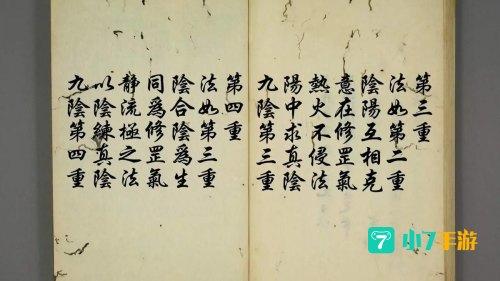 第三重
法如第二重
陰陽互相克
意在修罡氣
熱火不侵法
陽中求真陰
九陰第三重
第四重
法如第三重
陰合陰為生
同為修罡氣
靜流極之法
以陰練真陰
九陰第四重
7 小7手游